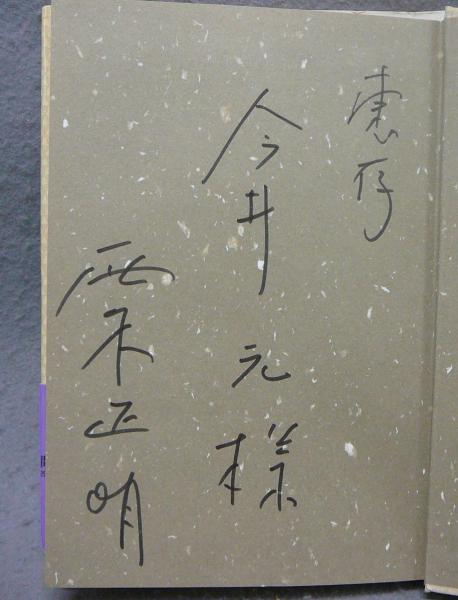 恵存
今井元様
西木正明